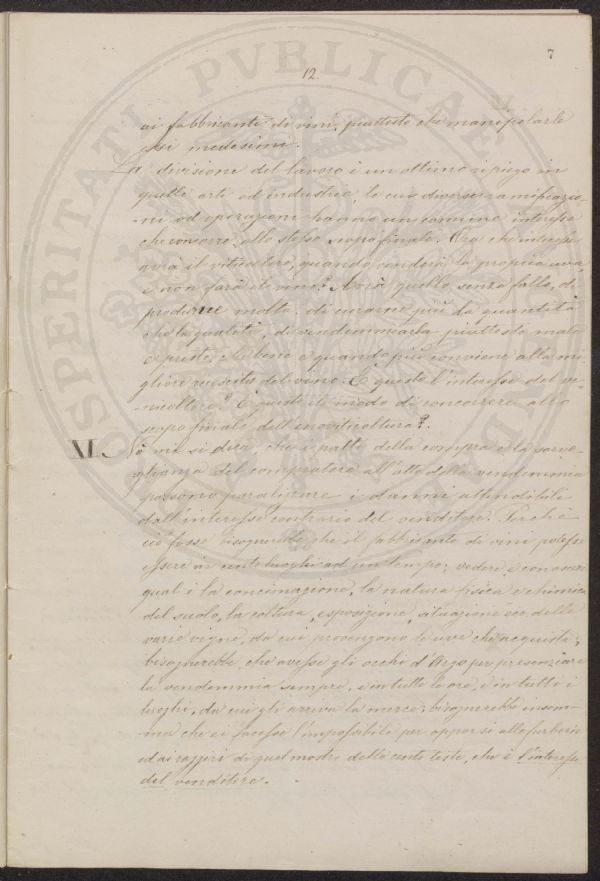 7
12.
ai fabbricanti di vini, piuttosto che manipolarle
essi medesimi.
La divisione del lavoro è un ottimo ripiego in
quelle arti ed industrie, le cui diverse ramificazio-
ni od operazioni hanno un comune interesse
che concorre allo stesso scopo finale. Ora che interesse
avrà il viticoltore, quando venderà la propria uva,
e non farà il vino? Avrà quello, senza fallo, di
produrre molto, di curarne più la quantità
che la qualità, di vendemmiarla piuttosto male
e presto, che bene e quando più conviene alla mi-
gliore riescita del vino. È questo l'interesse del vi-
nicoltore? È questo il modo di concorrere allo
scopo finale dell'enoviticoltura?
XI. Nè mi si dica che i patti della compra e la sorve-
glianza del compratore all'atto della vendemmia
possono paralizzare i danni attendibili
dall'interesse contrario del venditore. Perchè
ciò fosse bisognerebbe che il fabbricante di vini potesse
essere in cento luoghi ad un tempo; vedere e conoscere
qual è la concimazione, la natura fisica e chimica
del suolo, la coltura, esposizione, situazione ecc. delle
varie vigne, da cui provengono le uve che acquista;
bisognerebbe che avesse gli occhi d'Argo per presenziare
la vendemmia sempre, e in tutte le ore, e in tutti i
luoghi, da cui gli arriva la merce; bisognerebbe insom-
ma che ei facesse l'impossibile per opporsi alle furberie
ed ai raggiri di quel mostro dalle cento teste, che è l'interesse
del venditore.
PROSPERITATI PVBLICAE